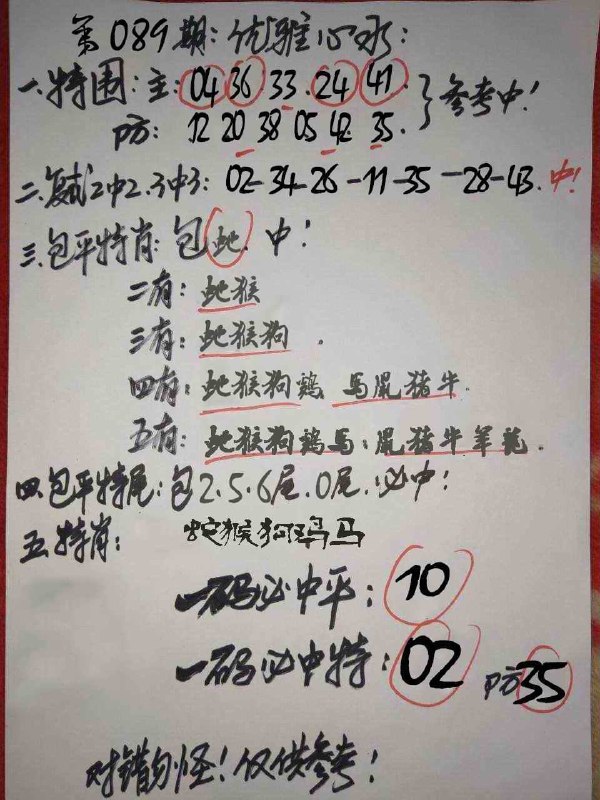 第089期：优雅心水：
一.特围：主：04 36 33 24 41 }参考中！
P方：12 20 38 05 42 35.
二.复式2中2.3中3：02-34-26-11-35-28-43.中！
三.包平特肖：包蛇.中！
二有：蛇猴
三有：蛇猴狗.
四有：蛇猴狗鸡 马鼠猪牛.
五有：蛇猴狗鸡马；鼠猪牛羊龙.
四.包平特尾：包2.5.6尾.0尾.必中！
五.特肖：蛇猴狗鸡马
一码必中平：10
一码必中特：02 P方35
对错勿怪！仅供参考！